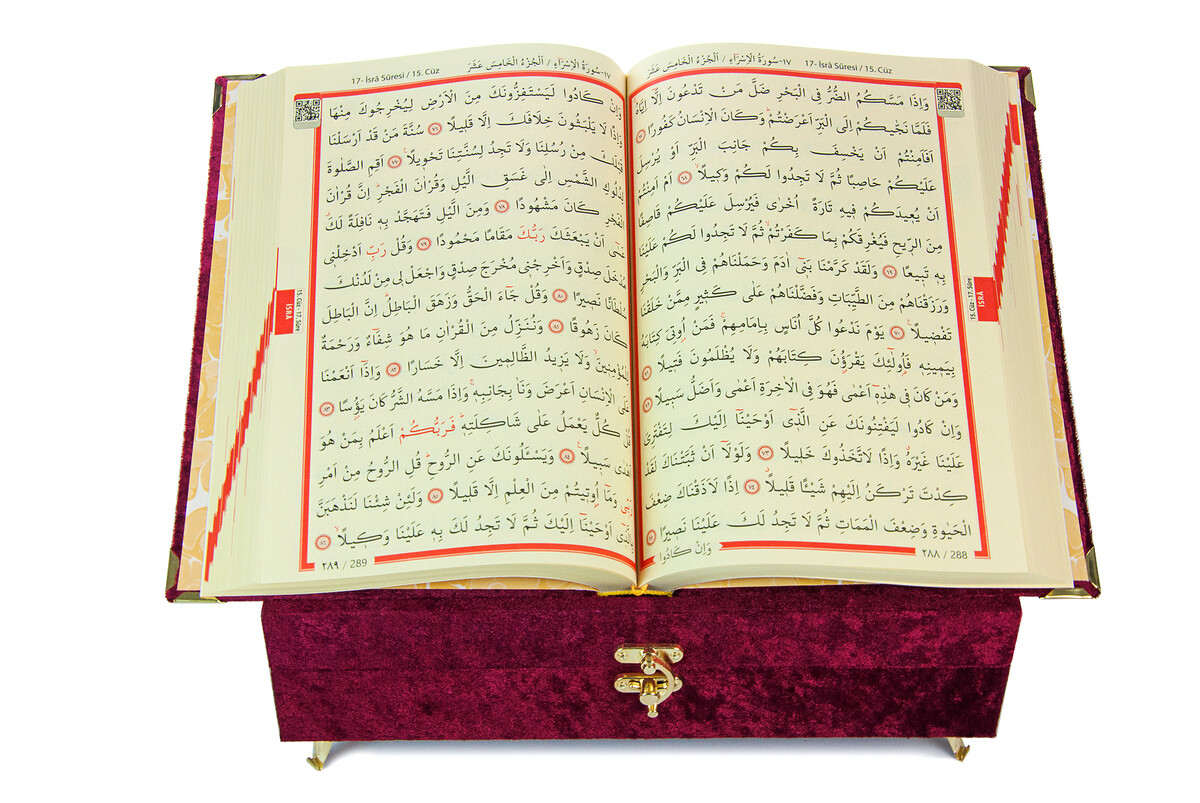 ١٧-سُورَةُ الْاِسْرَٓاءِ / اَلْجُزْءُ الْخَامِسَ عَشَرَ 17- İsrâ Sûresi / 15. Cüz
وَاِذَا مَسَّكُمُ الضُّرُّ فِى الْبَحْرِ ضَلَّ مَنْ تَدْعُونَ اِلَّٓا اِيَّاهُ
فَلَمَّا نَجّٰيكُمْ اِلَى الْبَرِّ اَعْرَضْتُمْ وَكَانَ الْاِنْسَانُ كَفُورًا
اَفَاَمِنْتُمْ اَنْ يَخْسِفَ بِكُمْ جَانِبَ الْبَرِّ اَوْ يُرْسِلَ
عَلَيْكُمْ حَاصِبًا ثُمَّ لَا تَجِدُوا لَكُمْ وَكِيلًا ﴿٦٨﴾ اَمْ اَمِنْتُمْ
اَنْ يُعِيدَكُمْ فِيهِ تَارَةً اُخْرٰى فَيُرْسِلَ عَلَيْكُمْ قَاصِفًا
مِنَ الرِّيحِ فَيُغْرِقَكُمْ بِمَا كَفَرْتُمْ ثُمَّ لَا تَجِدُوا لَكُمْ عَلَيْنَا
بِهِ تَبِيعًا ﴿٦٩﴾ وَلَقَدْ كَرَّمْنَا بَنِٓى اٰدَمَ وَحَمَلْنَاهُمْ فِى الْبَرِّ وَالْبَحْرِ
وَرَزَقْنَاهُمْ مِنَ الطَّيِّبَاتِ وَفَضَّلْنَاهُمْ عَلٰى كَثِيرٍ مِمَّنْ خَلَقْنَا
تَفْضِيلًا ﴿٧٠﴾ يَوْمَ نَدْعُوا كُلَّ اُنَاسٍ بِاِمَامِهِمْ فَمَنْ اُوتِىَ كِتَابَهُ
بِيَمِينِهِ فَاُولٰٓئِكَ يَقْرَؤُنَ كِتَابَهُمْ وَلَا يُظْلَمُونَ فَتِيلًا ﴿٧١﴾
وَمَنْ كَانَ فِى هٰذِهِٓ اَعْمٰى فَهُوَ فِى الْاٰخِرَةِ اَعْمٰى وَاَضَلُّ سَبِيلًا ﴿٧٢﴾
وَاِنْ كَادُوا لَيَفْتِنُونَكَ عَنِ الَّذِٓى اَوْحَيْنَٓا اِلَيْكَ لِتَفْتَرِىَ
عَلَيْنَا غَيْرَهُ وَاِذًا لَاتَّخَذُوكَ خَلِيلًا ﴿٧٣﴾ وَلَوْلَٓا اَنْ ثَبَّتْنَاكَ لَقَدْ
كِدْتَ تَرْكَنُ اِلَيْهِمْ شَيْـًٔا قَلِيلًا ﴿٧٤﴾ اِذًا لَاَذَقْنَاكَ ضِعْفَ
الْحَيٰوةِ وَضِعْفَ الْمَمَاتِ ثُمَّ لَا تَجِدُ لَكَ عَلَيْنَا نَصِيرًا ﴿٧٥﴾
وَاِنْ كَادُوا
٢٨٨ / 288
15. Cüz - 17. Sûre
İSRÂ
١٧-سُورَةُ الْاِسْرَٓاءِ / اَلْجُزْءُ الْخَامِسَ عَشَرَ 17- İsrâ Sûresi / 15. Cüz
وَاِنْ كَادُوا لَيَسْتَفِزُّونَكَ مِنَ الْاَرْضِ لِيُخْرِجُوكَ مِنْهَا
وَاِذًا لَا يَلْبَثُونَ خِلَافَكَ اِلَّا قَلِيلًا ﴿٧٦﴾ سُنَّةَ مَنْ قَدْ اَرْسَلْنَا
قَبْلَكَ مِنْ رُسُلِنَا وَلَا تَجِدُ لِسُنَّتِنَا تَحْوِيلًا ﴿٧٧﴾ اَقِمِ الصَّلٰوةَ
لِدُلُوكِ الشَّمْسِ اِلٰى غَسَقِ الَّيْلِ وَقُرْاٰنَ الْفَجْرِ اِنَّ قُرْاٰنَ
الْفَجْرِ كَانَ مَشْهُودًا ﴿٧٨﴾ وَمِنَ الَّيْلِ فَتَهَجَّدْ بِهِ نَافِلَةً لَكَ
عَسٰٓى اَنْ يَبْعَثَكَ رَبُّكَ مَقَامًا مَحْمُودًا ﴿٧٩﴾ وَقُلْ رَبِّ اَدْخِلْنِى
مُدْخَلَ صِدْقٍ وَاَخْرِجْنِى مُخْرَجَ صِدْقٍ وَاجْعَلْ لِى مِنْ لَدُنْكَ
سُلْطَانًا نَصِيرًا ﴿٨٠﴾ وَقُلْ جَٓاءَ الْحَقُّ وَزَهَقَ الْبَاطِلُ اِنَّ الْبَاطِلَ
كَانَ زَهُوقًا ﴿٨١﴾ وَنُنَزِّلُ مِنَ الْقُرْاٰنِ مَا هُوَ شِفَٓاءٌ وَرَحْمَةٌ
لِلْمُؤْمِنِينَ وَلَا يَزِيدُ الظَّالِمِينَ اِلَّا خَسَارًا ﴿٨٢﴾ وَاِذَٓا اَنْعَمْنَا
عَلَى الْاِنْسَانِ اَعْرَضَ وَنَاٰ بِجَانِبِهِ وَاِذَا مَسَّهُ الشَّرُّ كَانَ يَؤُسًا ﴿٨٣﴾
قُلْ كُلٌّ يَعْمَلُ عَلٰى شَاكِلَتِهِ فَرَبُّكُمْ اَعْلَمُ بِمَنْ هُوَ
اَهْدٰى سَبِيلًا ﴿٨٤﴾ وَيَسْـَٔلُونَكَ عَنِ الرُّوحِ قُلِ الرُّوحُ مِنْ اَمْرِ
رَبِّى وَمَٓا اُوتِيتُمْ مِنَ الْعِلْمِ اِلَّا قَلِيلًا ﴿٨٥﴾ وَلَئِنْ شِئْنَا لَنَذْهَبَنَّ
بِالَّذِٓى اَوْحَيْنَٓا اِلَيْكَ ثُمَّ لَا تَجِدُ لَكَ بِهِ عَلَيْنَا وَكِيلًا ﴿٨٦﴾
٢٨٩ / 289
15. Cüz - 17. Sûre
İSRÂ